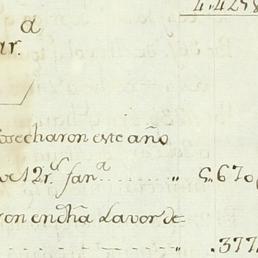 4.425
a
ar.
osecharon este año
e 12 rˢ fanᵃ ........ " 5.670
on en dha Lavor de
........ " .377